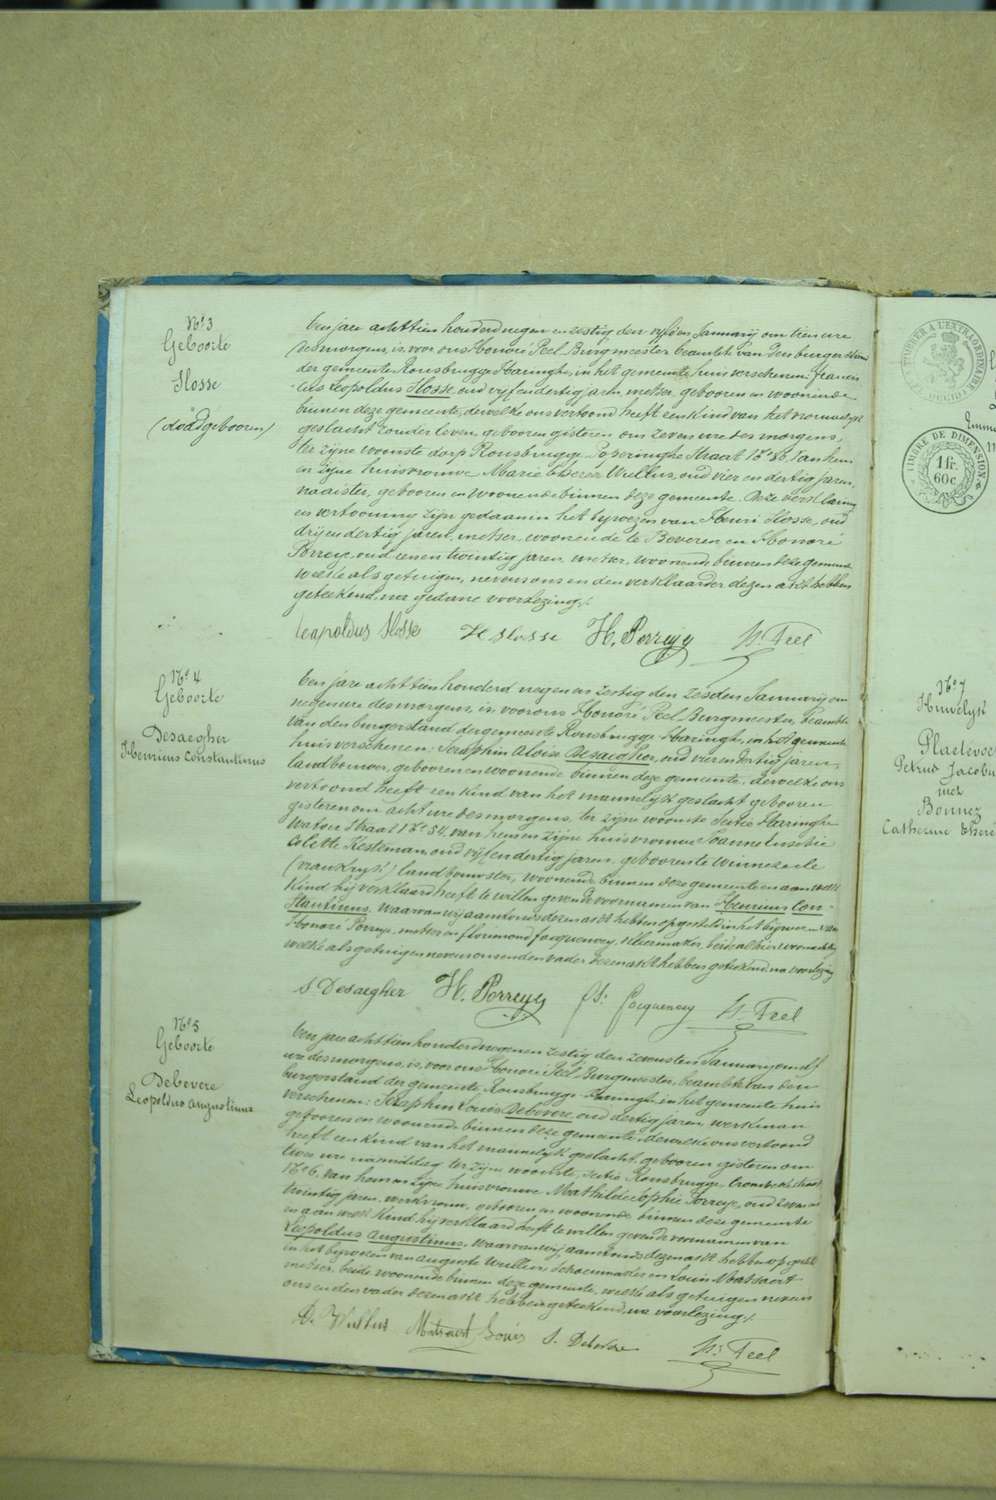 N.º 3
Geboorte
Hosse
(doodgebooren)
Een jare achttien honderd negen en zestig den vyfden January om tien ure
des morgens, is voor ons Honoré Peel Burgmeester beambte van den burgerstand
der gemeente Rousbrugge Haringhe, in het gemeente huis verschenen: Francis-
cus Leopoldus Hosse, oud vyf en dertig jaren, metser, gebooren en woonende
binnen deze gemeente, dewelke ons vertoond heeft een kind van het vrouwelyk
geslacht zonder leven, gebooren gisteren om zeven ure des morgens,
ter zyne woonste dorp Rousbrugge Poperinghe Straat N.º 86, van hem
en zyne huisvrouwe Marie Theresia Wullus, oud vier en dertig jaren,
naaister, gebooren en woonende binnen deze gemeente. Deze verklaring
en vertooning zyn gedaan in het bywezen van Henri Hosse, oud
dry en dertig jaren, metser, woonende te Beveren en Honoré
Porreye, oud een en twintig jaren, metser, woonende binnen deze gemeente
welke als getuigen, nevens ons en den verklaarder dezen akt hebben
geteekend, na gedane voorlezing./.
Leopoldus Hosse H Hosse H. Porreye H. Peel
N.º 4
Geboorte
Desaegher
Henricus Constantinus
Een jare achttien honderd negen en zestig den zesden January om
negen ure des morgens, is, voor ons Honoré Peel Burgmeester, beambte
van den burgerstand der gemeente Rousbrugge Haringhe, in het gemeente
huis verschenen: Seraphin Aloise Desaegher, oud vier en dertig jaren,
landbouwer, gebooren en woonende binnen deze gemeente, dewelke ons
vertoond heeft een kind van het mannelyk geslacht gebooren
gisteren om acht ure des morgens, ter zyne woonste Sectie Haringhe
Watou Straat N.º 54, van hem en zyne huisvrouwe Joanne Eusebie
Colette Kesteman, oud vyf en dertig jaren, gebooren te Winnezeele
(vrankryk) landbouwster, woonende binnen deze gemeente en aan welk
Kind hy verklaard heeft te willen geven de voornamen van Henricus Con-
stantinus. Waarvan wy aanstonds dezen akt hebben opgesteld in het bywezen van
Honoré Porreye, metser en florimond Jacqueney, kleermaker, beide alhier woonachtig
welke als getuigen nevens ons en den vader dezen akt hebben geteekend, na voorlezing
S. Desaegher H. Porreye fl: Jacqueney H. Peel
N.º 5
Geboorte
Debevere
Leopoldus Augustinus
Een jare achttien honderd negen en zestig den zevensten January om elf
ure des morgens, is, voor ons Honoré Peel Burgmeester, beambte van den
burgerstand der gemeente Rousbrugge Haringhe in het gemeente huis
verschenen: Seraphin Louis Debevere, oud dertig jaren, werkman
gebooren en woonende binnen deze gemeente, dewelke ons vertoond
heeft een kind van het mannelyk geslacht, gebooren gisteren om
twee ure namiddag ter zyne woonste, Sectie Rousbrugge,
N.º 6, van hem en zyne huisvrouwe Mathilde Sophie Porreye, oud zeven en
twintig jaren, werkvrouw, gebooren en woonende binnen deze gemeente
en aan welk Kind hy verklaard heeft te willen geven de voornamen van
Leopoldus Augustinus, waarvan wy aanstonds dezen akt hebben opgesteld
in het bywezen van Auguste Wullus Schoenmaker en Louis Matsaert
metser, beide woonende binnen deze gemeente, welke als getuigen nevens
ons en den vader dezen akt hebben geteekend, na voorlezing./.
A. Wullus Matsaert Louis S. Debevere H. Peel
TIMBRE A L'EXTRAORDINAIRE
BELGIQUE
TIMBRE DE DIMENSION
1 fr.
60 c.
N.º 7
Huwelyk
Plaetevoet
Petrus Jacobus
met
Bonnez
Catherine